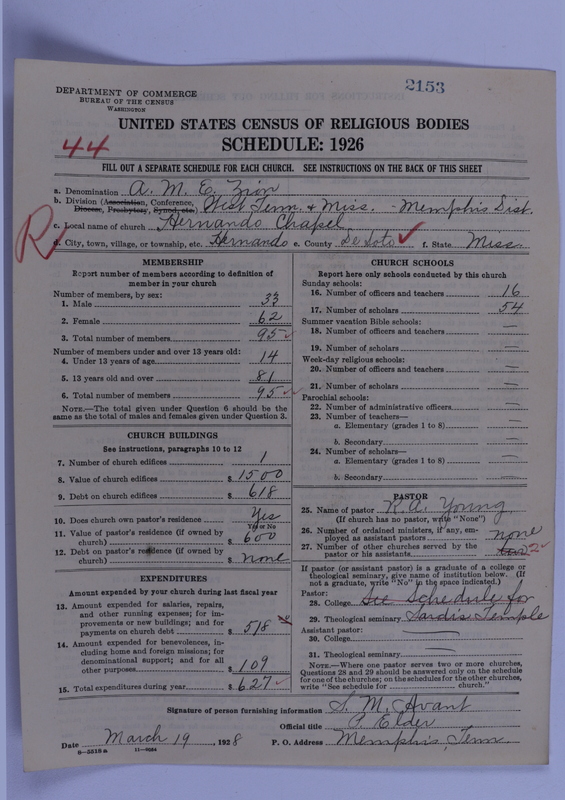 2153
DEPARTMENT OF COMMERCE
BUREAU OF THE CENSUS
WASHINGTON
UNITED STATES CENSUS OF RELIGIOUS BODIES
44
SCHEDULE: 1926
FILL OUT A SEPARATE SCHEDULE FOR EACH CHURCH. SEE INSTRUCTIONS ON THE BACK OF THIS SHEET
a. Denomination A. M. E. Zion
b. Division (Association, Conference, Diocese, Presbytery, Synod, etc.) West Tenn. & Miss. - Memphis Dist.
c. Local name of church Hernando Chapel
R
d. City, town, village, or township, etc. Hernando e. County De Soto f. State Miss.
MEMBERSHIP
Report number of members according to definition of
member in your church
Number of members, by sex:
1. Male 33
2. Female 62
3. Total number of members 95
Number of members under and over 13 years old:
4. Under 13 years of age 14
5. 13 years old and over 81
6. Total number of members 95
NOTE.—The total given under Question 6 should be
same as the total of males and females given under Question 3.
CHURCH BUILDINGS
See instructions, paragraphs 10 to 12
7. Number of church edifices 1
8. Value of church edifices $1500
9. Debt on church edifices $618
10. Does church own pastor's residence Yes
Yes or No
11. Value of pastor's residence (if owned by
church) $600
12. Debt on pastor's residence (if owned by
church) $none
EXPENDITURES
Amount expended by your church during last fiscal year
13. Amount expended for salaries, repairs,
and other running expenses; for im-
provements or new buildings; and for
payments on church debt $518
14. Amount expended for benevolences, in-
cluding home and foreign missions; for
denominational support; and for all
other purposes $109
15. Total expenditures during year $627
CHURCH SCHOOLS
Report here only schools conducted by this church
Sunday schools:
16. Number of officers and teachers 16
17. Number of scholars 54
Summer vacation Bible schools:
18. Number of officers and teachers —
19. Number of scholars —
Week-day religious schools:
20. Number of officers and teachers —
21. Number of scholars —
Parochial schools:
22. Number of administrative officers —
23. Number of teachers—
a. Elementary (grades 1 to 8) —
b. Secondary —
24. Number of scholars—
a. Elementary (grades 1 to 8) —
b. Secondary —
PASTOR
25. Name of pastor R. A. Young
(If church has no pastor, write "None")
26. Number of ordained ministers, if any, em-
ployed as assistant pastors none
27. Number of other churches served by the
pastor or his assistants 2
If pastor (or assistant pastor) is a graduate of a college or
theological seminary, give name of institution below. (If
not a graduate, write "No" in the space indicated.)
Pastor:
28. College See Schedule for
29. Theological seminary Sardis Temple
Assistant pastor:
30. College —
31. Theological seminary —
NOTE.—Where one pastor serves two or more churches,
Questions 28 and 29 should be answered only on the schedule
for one of the churches; on the schedules for the other churches,
write "See schedule for ........ church."
Signature of person furnishing information S. M. Avant
Official title P. Elder
Date March 19, 1928 P. O. Address Memphis, Tenn
6—5518a 11—9284